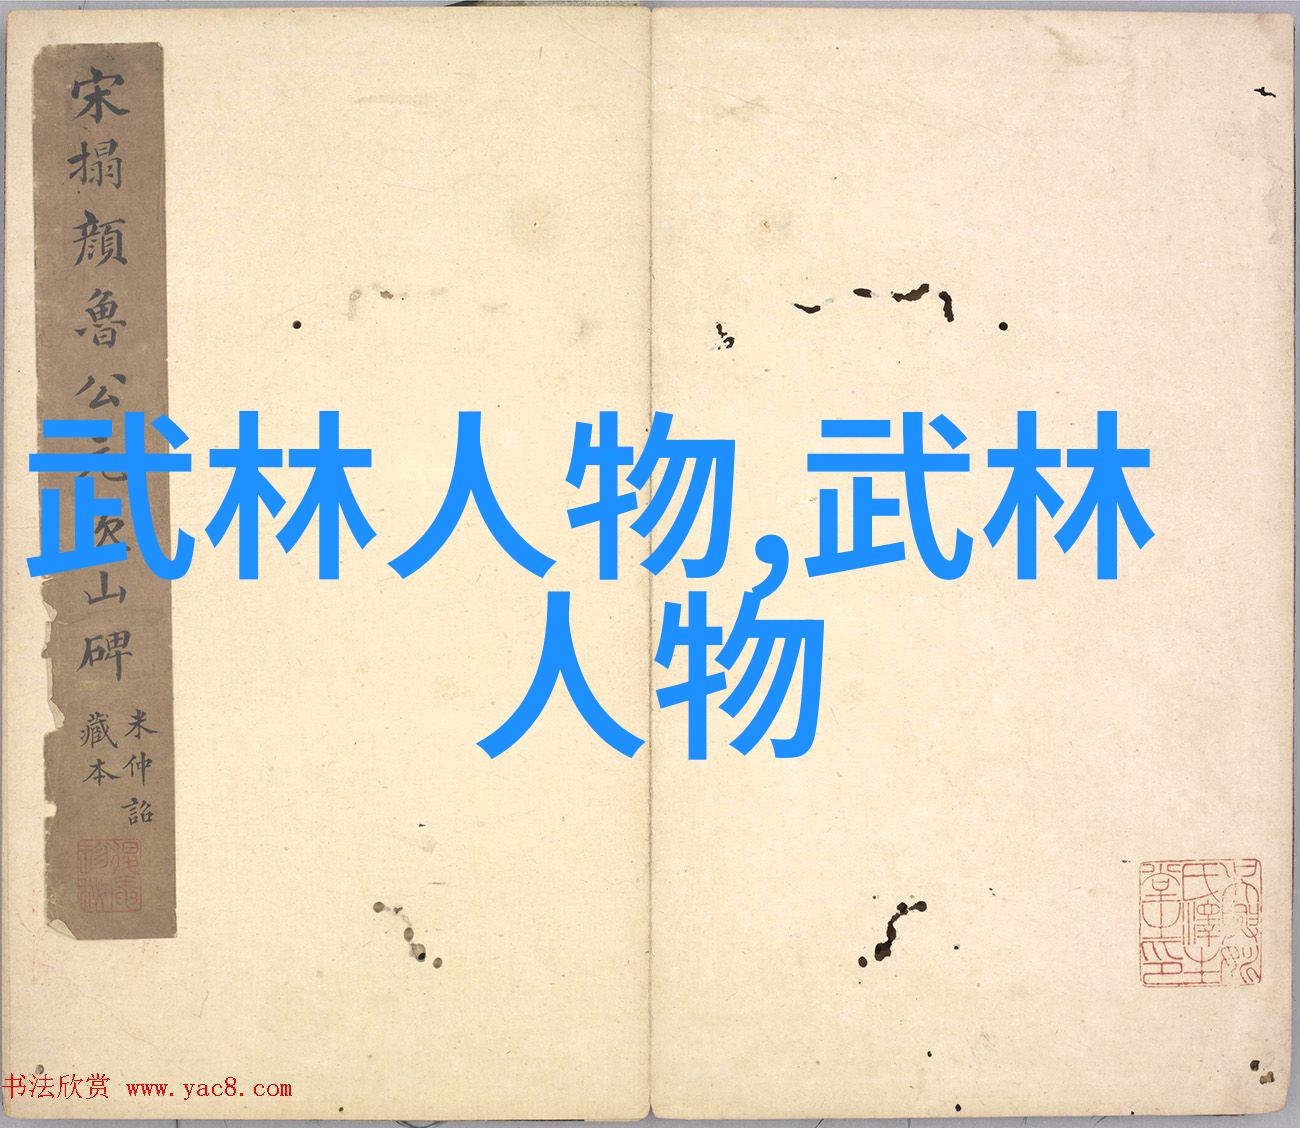 宋搨顔魯公元次山碑
米仲詔
藏本
武林人物,武林
人物
书法欣赏 www.yac8.com